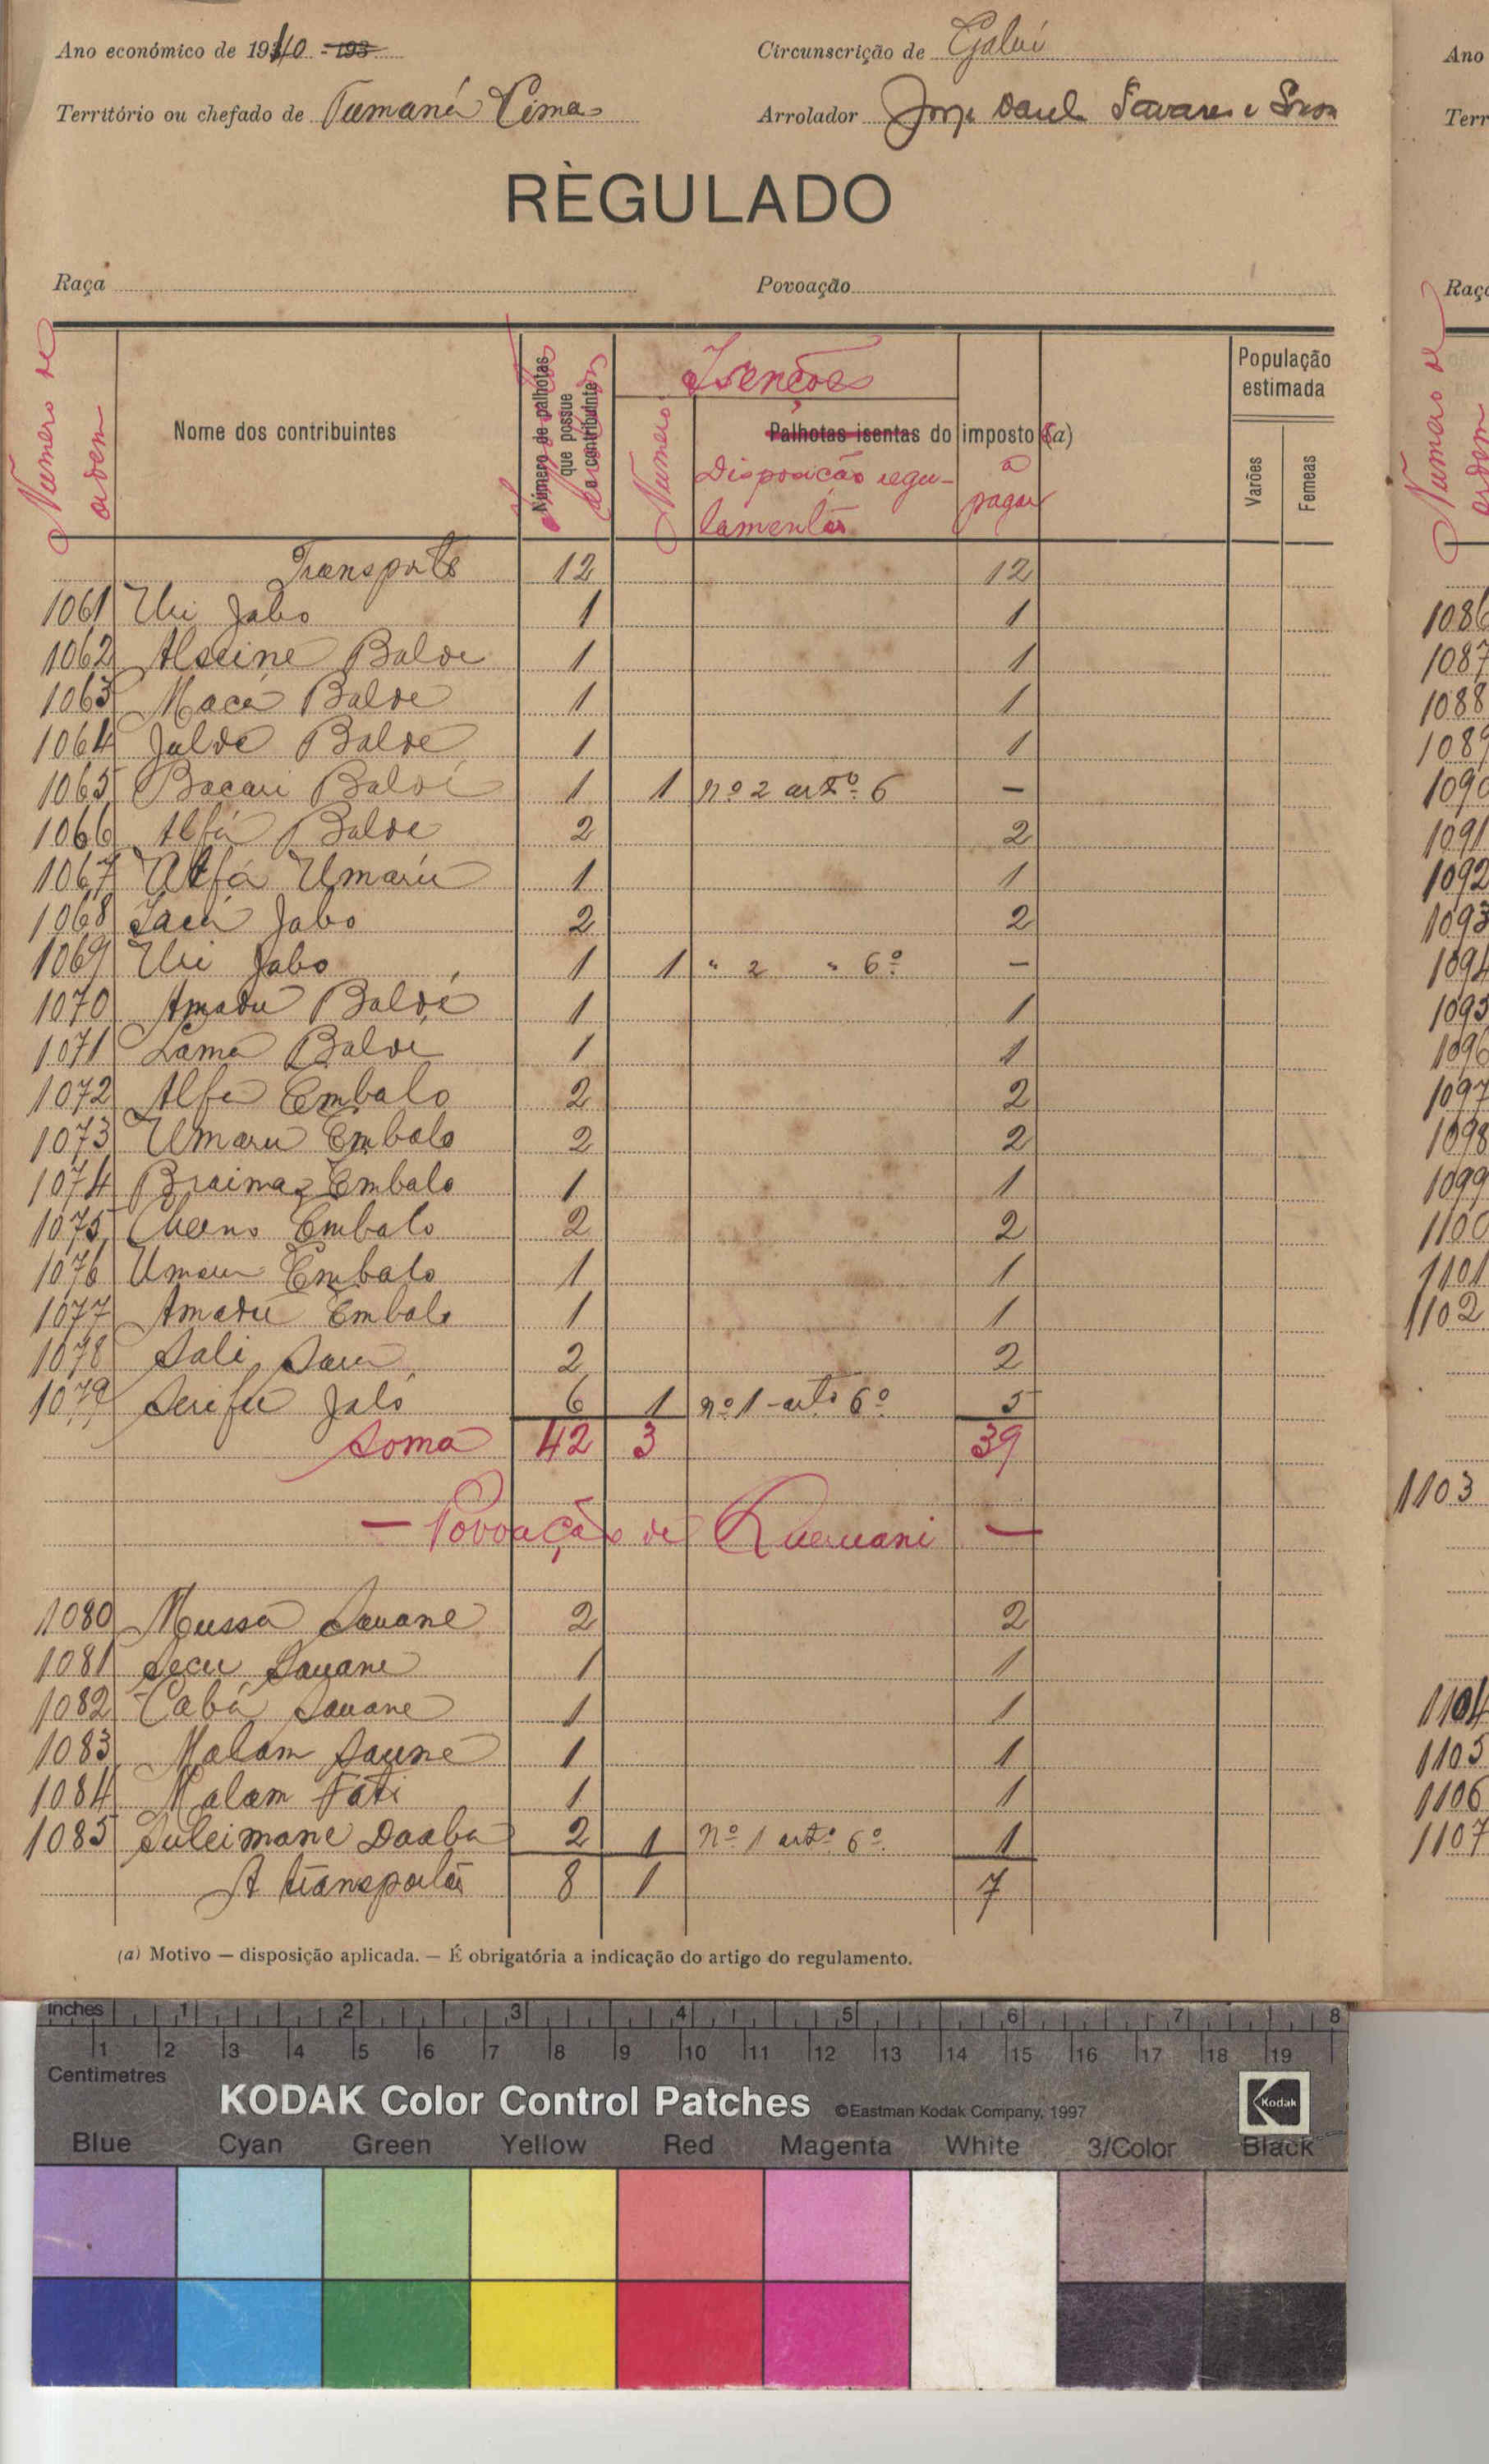 Ano económico de 1940 - 193
Circunscrição de
Território ou chefado de Tumaná Cima
Arrolador Tavares e
RÈGULADO
Raça
Povoação
Numero de ordem
Nome dos contribuintes
Número de palhotas que possue o contribuinte
Isenções
Numero
Palhotas isentas do imposto (a)
Disposição regulamentar
a pagar
População estimada
Varões
Femeas
Transporte 12 12
1061 Jabo 1 1
1062 Alseine Balde 1 1
1063 Macá Balde 1 1
1064 Julde Balde 1 1
1065 Bacari Baldé 1 1 nº 2 artº 6 -
1066 Alfá Balde 2 2
1067 Alfá Umarú 1 1
1068 Jabo 2 2
1069 Jabo 1 1 " 2 " 6º -
1070 Amadu Baldé 1 1
1071 Lama Balde 1 1
1072 Alfa Embalo 2 2
1073 Umaru Embalo 2 2
1074 Braima Embalo 1 1
1075 Embalo 2 2
1076 Umaru Embalo 1 1
1077 Amadú Embalo 1 1
1078 Sali 2 2
1079 Serifu Jaló 6 1 nº 1 - artº 6º 5
Soma 42 3 39
- Povoação de Queruani -
1080 Mussa Sauane 2 2
1081 Secu Sauane 1 1
1082 Cabá Sauane 1 1
1083 Malam Saune 1 1
1084 Malam Fati 1 1
1085 Suleimane Daaba 2 1 nº 1 artº 6º 1
A transportar 8 1 7
(a) Motivo — disposição aplicada. — É obrigatória a indicação do artigo do regulamento.
Ano
Terr
Raça
Numero de ordem
1086
1087
1088
1089
1090
1091
1092
1093
1094
1095
1096
1097
1098
1099
1100
1101
1102
1103
1104
1105
1106
1107
inches 1 2 3 4 5 6 7 8
1 2 3 4 5 6 7 8 9 10 11 12 13 14 15 16 17 18 19
Centimetres
KODAK Color Control Patches ©Eastman Kodak Company, 1997 Kodak
Blue Cyan Green Yellow Red Magenta White 3/Color Black